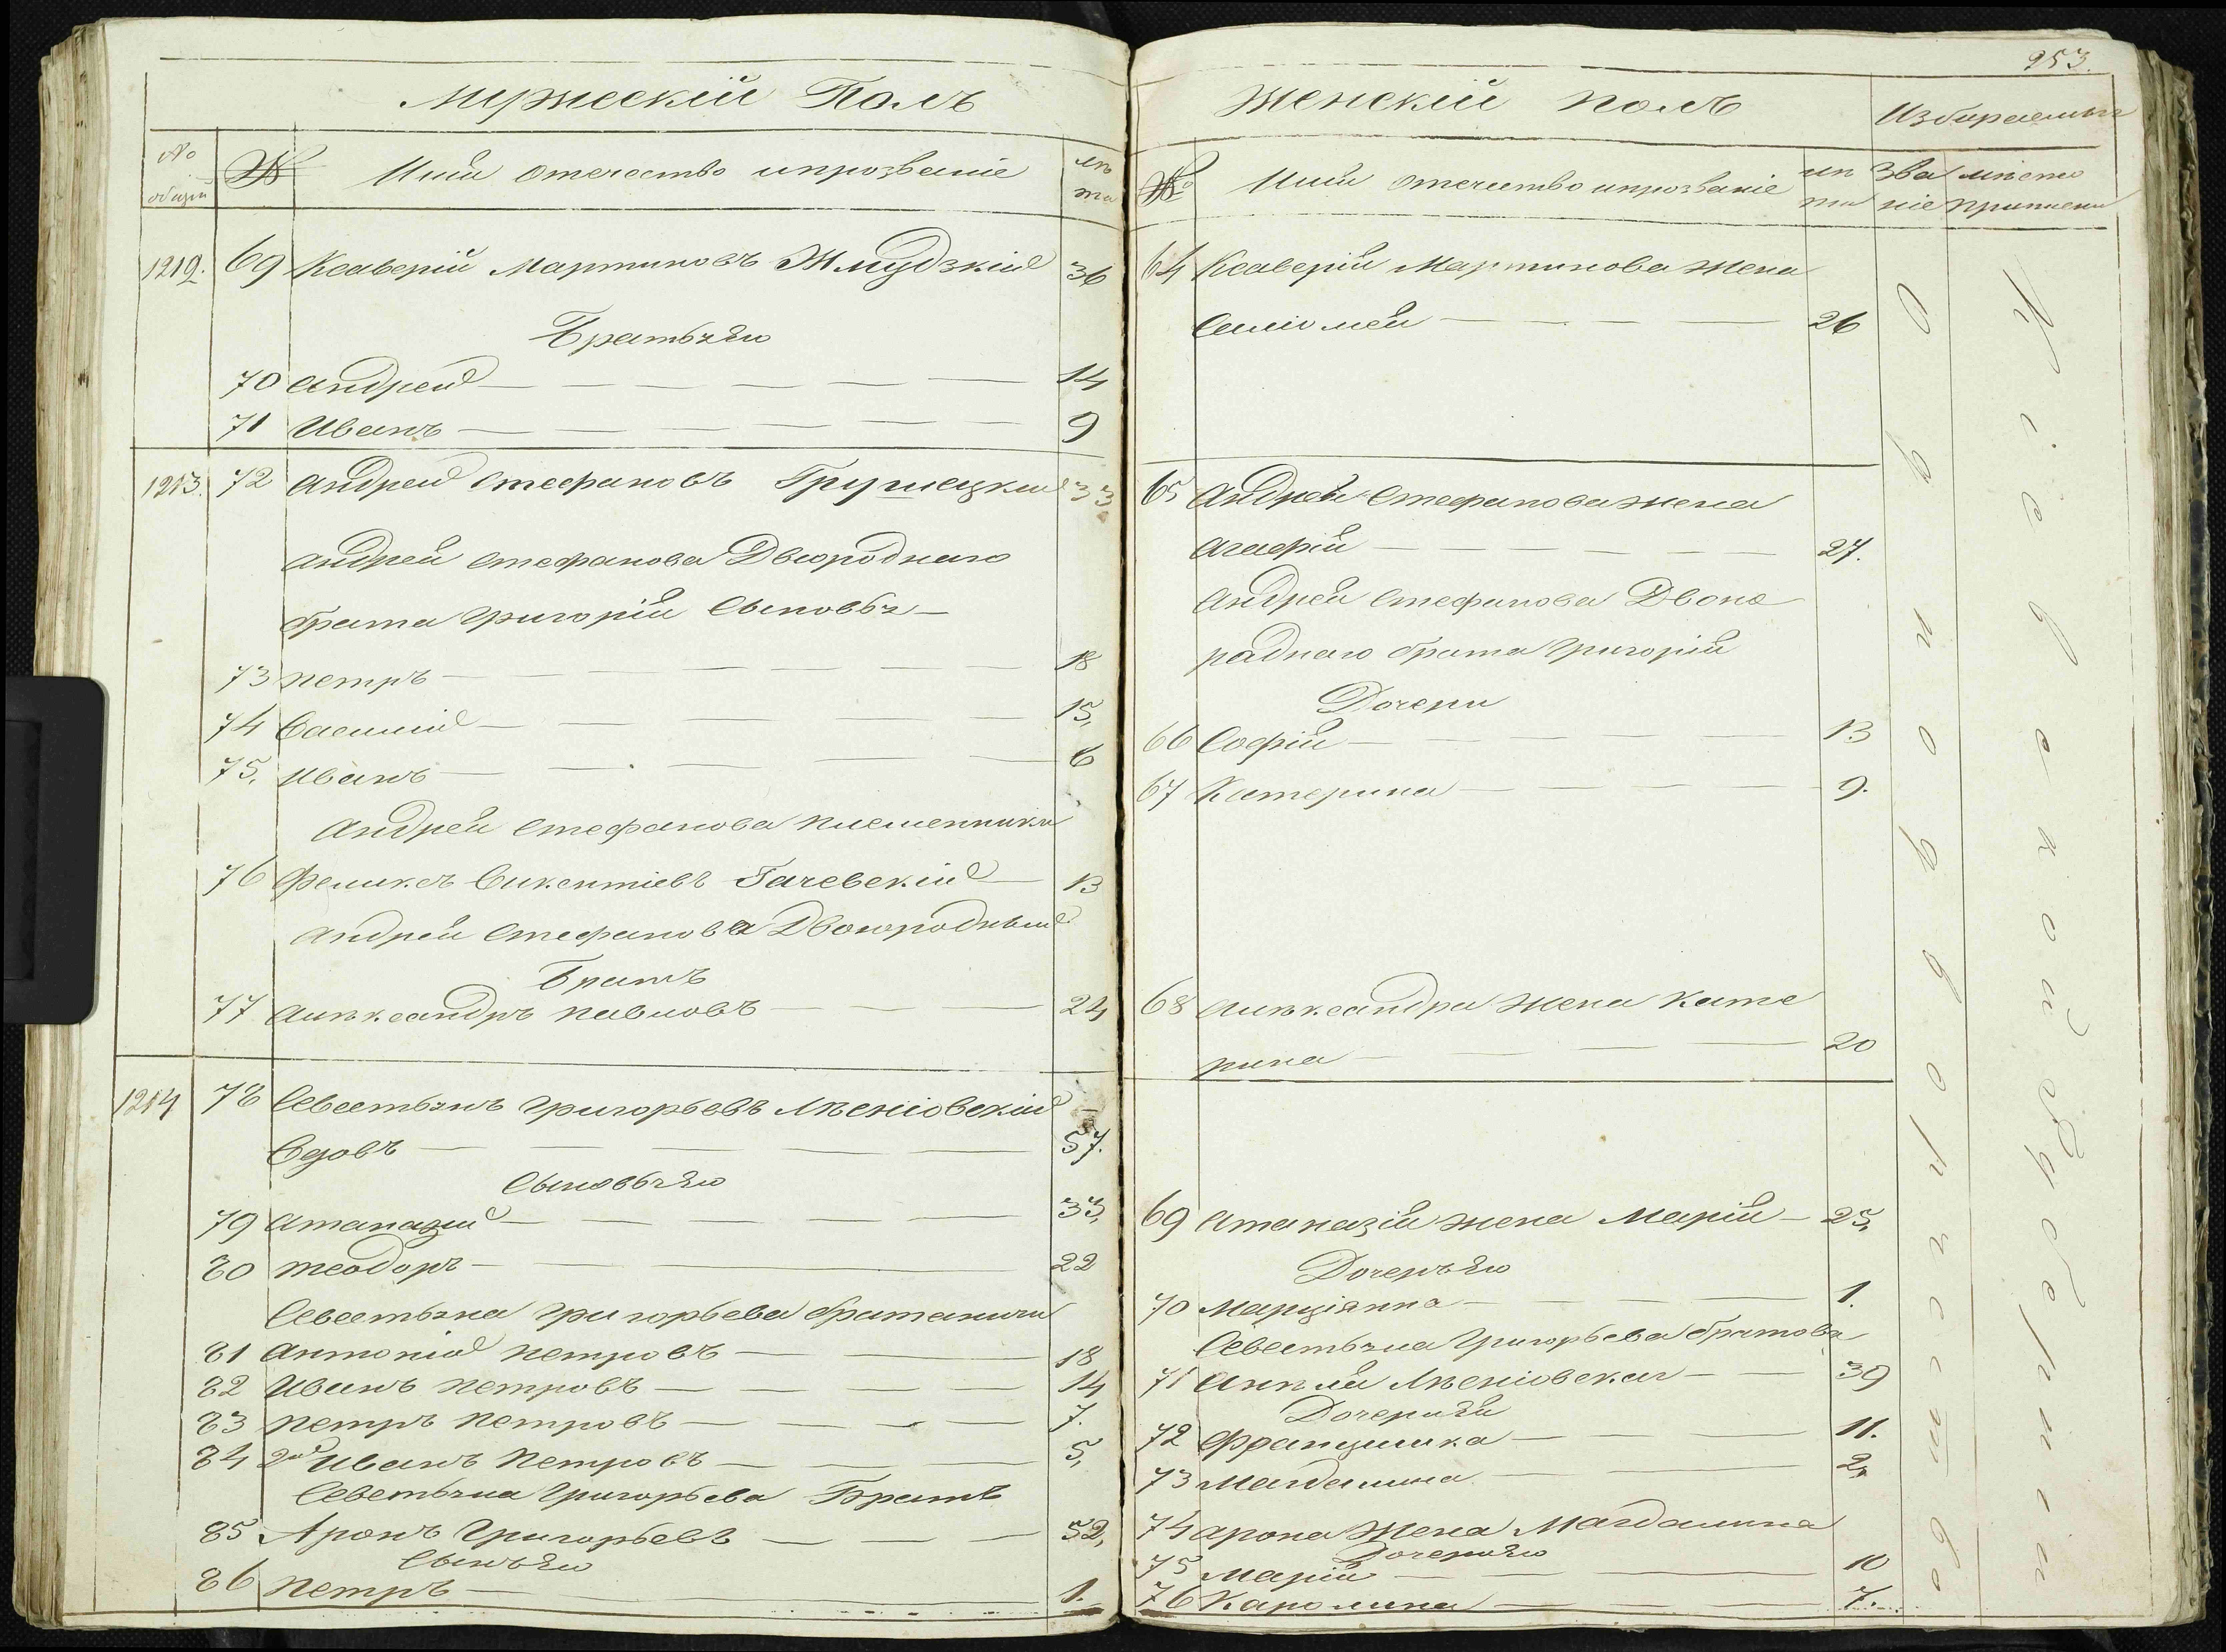 Мужескій Полъ
№ общій
№
Имя отечество и прозваніе
лѣта
1212. 69 Ксаверій Мартиновъ Жмудзкій 36
Братья Ево
70 Андрей — 14
71 Иванъ — 9
1213. 72 Андрей Стефановъ Грушецкій 33
Андрея Стефанова Двоюроднаго
брата Григорія Сыновья —
73 Петръ — 18
74 Василій — 15,
75. Иванъ — 6
Андрея Стефанова племенники
76 Феликсъ Викентіевъ Гачевскій — 13
Андрея Стефанова Двоюродный
Братъ
77 Александръ Павловъ — 24
1214 78 Севестьянъ Григорьевъ
Вдовъ — 57.
Сыновья Ево
79 Атаназій — 33,
80 Теодоръ — 22
Севестьяна Григорьева братаничи
81 Антоній Петровъ — 18
82 Иванъ Петровъ — 14
83 Петръ Петровъ — 7.
84 2й Иванъ Петровъ — 5,
Севестьяна Григорьева Братъ
85 Аронъ Григорьевъ — 52,
Сынъ Ево
86 Петръ — 1.
253.
Женскій полъ
Избираемыя
№
Имя отечество и прозваніе
лѣта
Званіе
мѣсто приписки
64 Ксаверія Мартинова жена
Саломея — 26
65 Андрея Стефанова жена
Агафія — 27.
Андрея Стефанова Двою
роднаго брата Григорія
Дочери
66 Софія — 13
67 Катерина — 9.
68 Александра жена Кате
рина — 20
69 Атаназія жена Марія — 25,
Дочерь Ево
70 Марціянна — 1.
Севестьяна Григорьева братова
71 — 39
Дочери Ея
72 Францишка — 11.
73 Магдалина — 2,
74 Арона Жена Магдалина
Дочери Ево
75 Марія — 10
76 Каролина — 7.
Однодворчество
Кіевской Губерніи